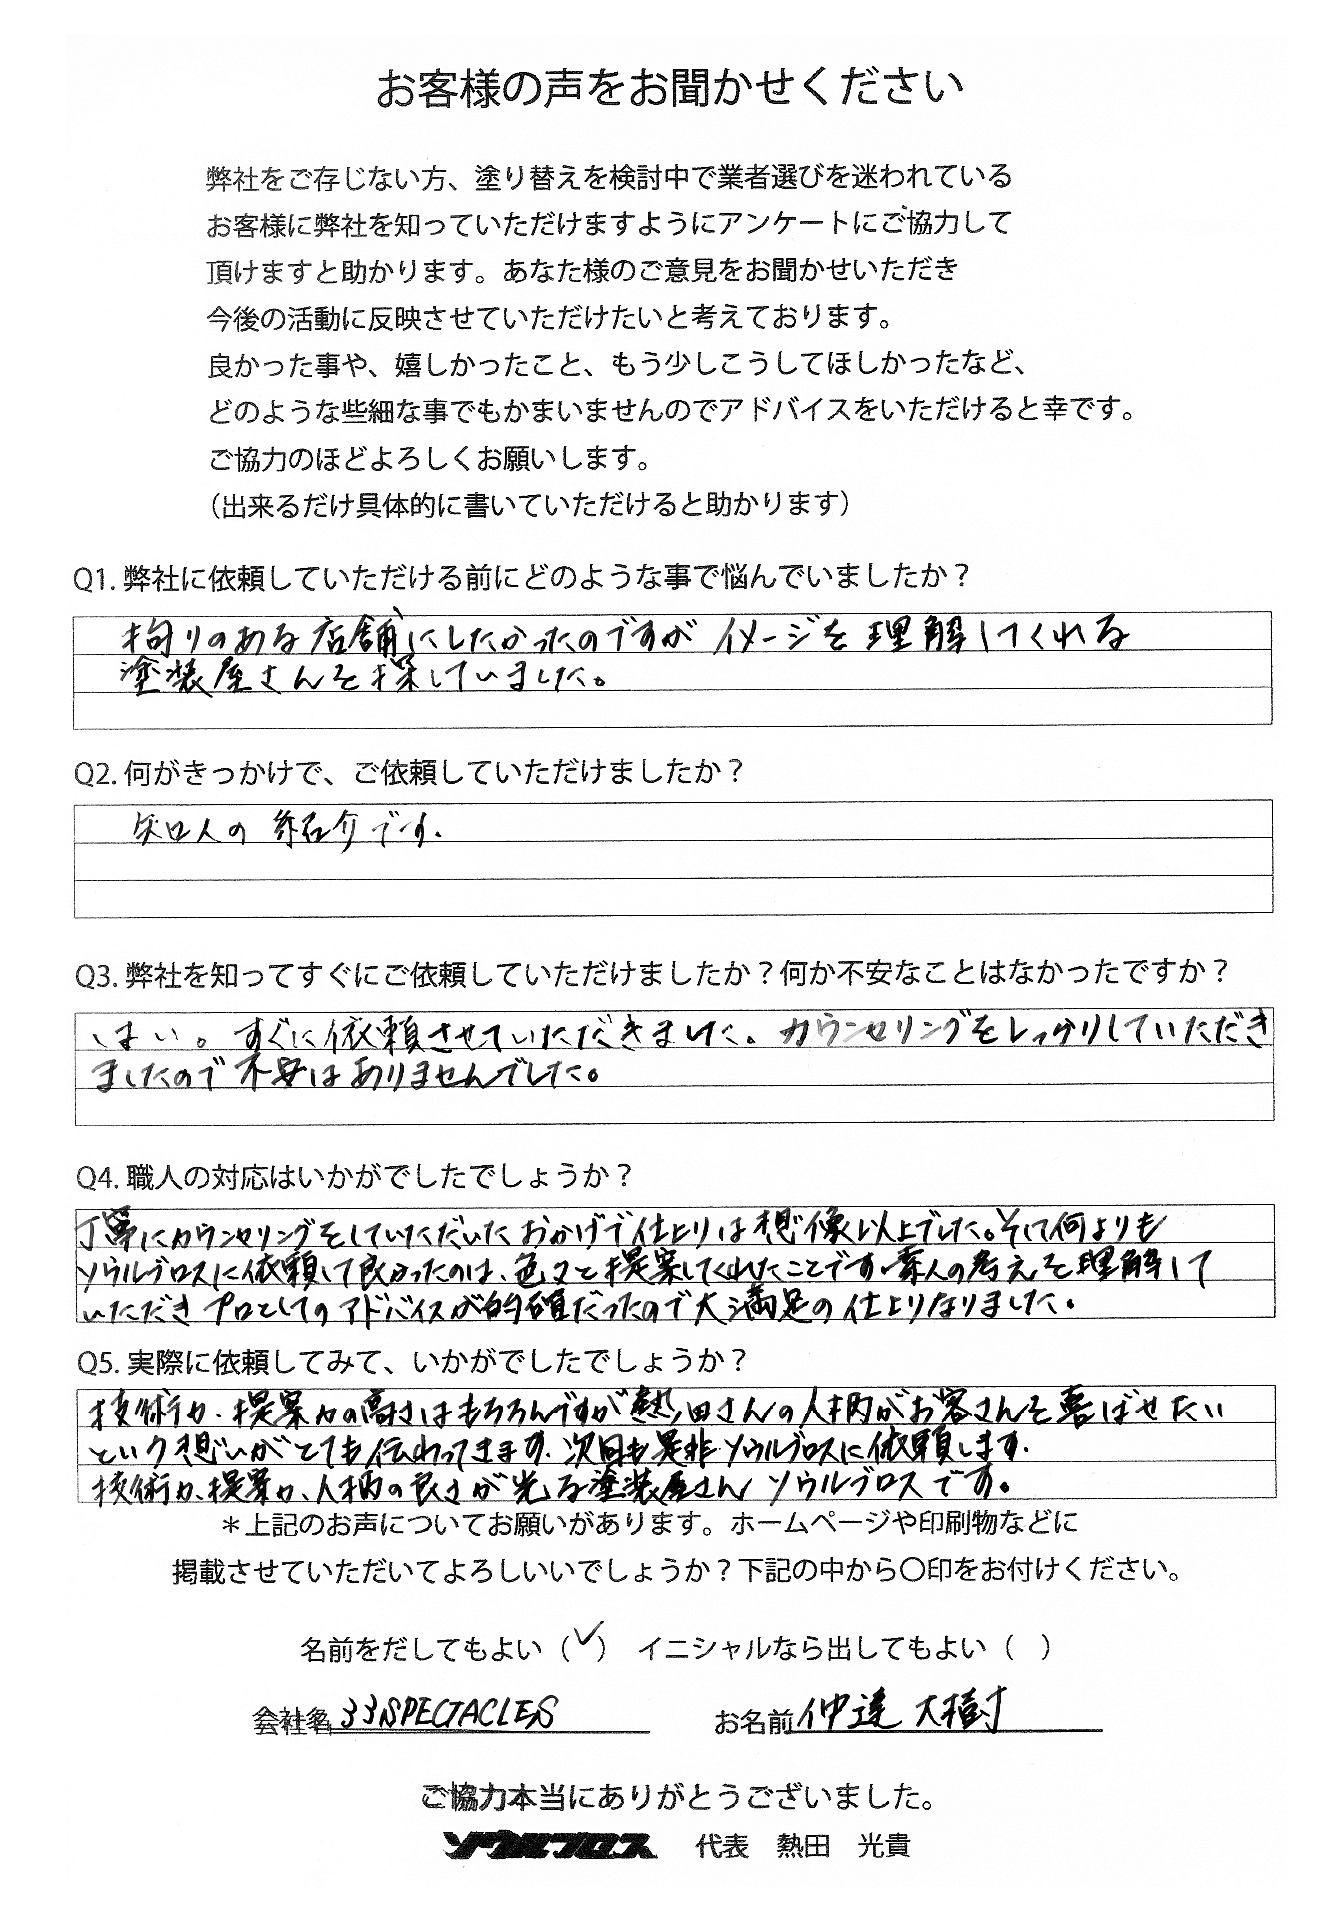 お客様の声をお聞かせください
弊社をご存じない方、塗り替えを検討中で業者選びを迷われている
お客様に弊社を知っていただけますようにアンケートにご協力して
頂けますと助かります。あなた様のご意見をお聞かせいただき
今後の活動に反映させていただけたいと考えております。
良かった事や、嬉しかったこと、もう少しこうしてほしかったなど、
どのような些細な事でもかまいませんのでアドバイスをいただけると幸です。
ご協力のほどよろしくお願いします。
（出来るだけ具体的に書いていただけると助かります）
Q1. 弊社に依頼していただける前にどのような事で悩んでいましたか？
拘りのある店舗にしたかったのですが イメージを理解してくれる
塗装屋さんを探していました。
Q2. 何がきっかけで、ご依頼していただけましたか？
知人の紹介です.
Q3. 弊社を知ってすぐにご依頼していただけましたか？何か不安なことはなかったですか？
はい。すぐに依頼させていただきました。カウンセリングをしっかりしていただき
ましたので不安はありませんでした。
Q4. 職人の対応はいかがでしたでしょうか？
丁寧にカウンセリングをしていただいたおかげで仕上りは想像以上でした。そして何よりも
ソウルブロスに依頼して良かったのは、色々と提案してくれたことです。素人の考えを理解して
いただきプロとしてのアドバイスが的確だったので大満足の仕上りなりました。
Q5. 実際に依頼してみて、いかがでしたでしょうか？
技術力、提案力の高さはもちろんですが熱田さんの人柄がお客さんを喜ばせたい
という想いがとても伝わってきます。次回も是非ソウルブロスに依頼します.
技術力、提案力、人柄の良さが光る塗装屋さん ソウルブロスです。
＊上記のお声についてお願いがあります。ホームページや印刷物などに
掲載させていただいてよろしいいでしょうか？下記の中から〇印をお付けください。
名前をだしてもよい（✓） イニシャルなら出してもよい（ ）
会社名 33SPECTACLES お名前 仲達 大樹
ご協力本当にありがとうございました。
ソウルブロス 代表 熱田 光貴